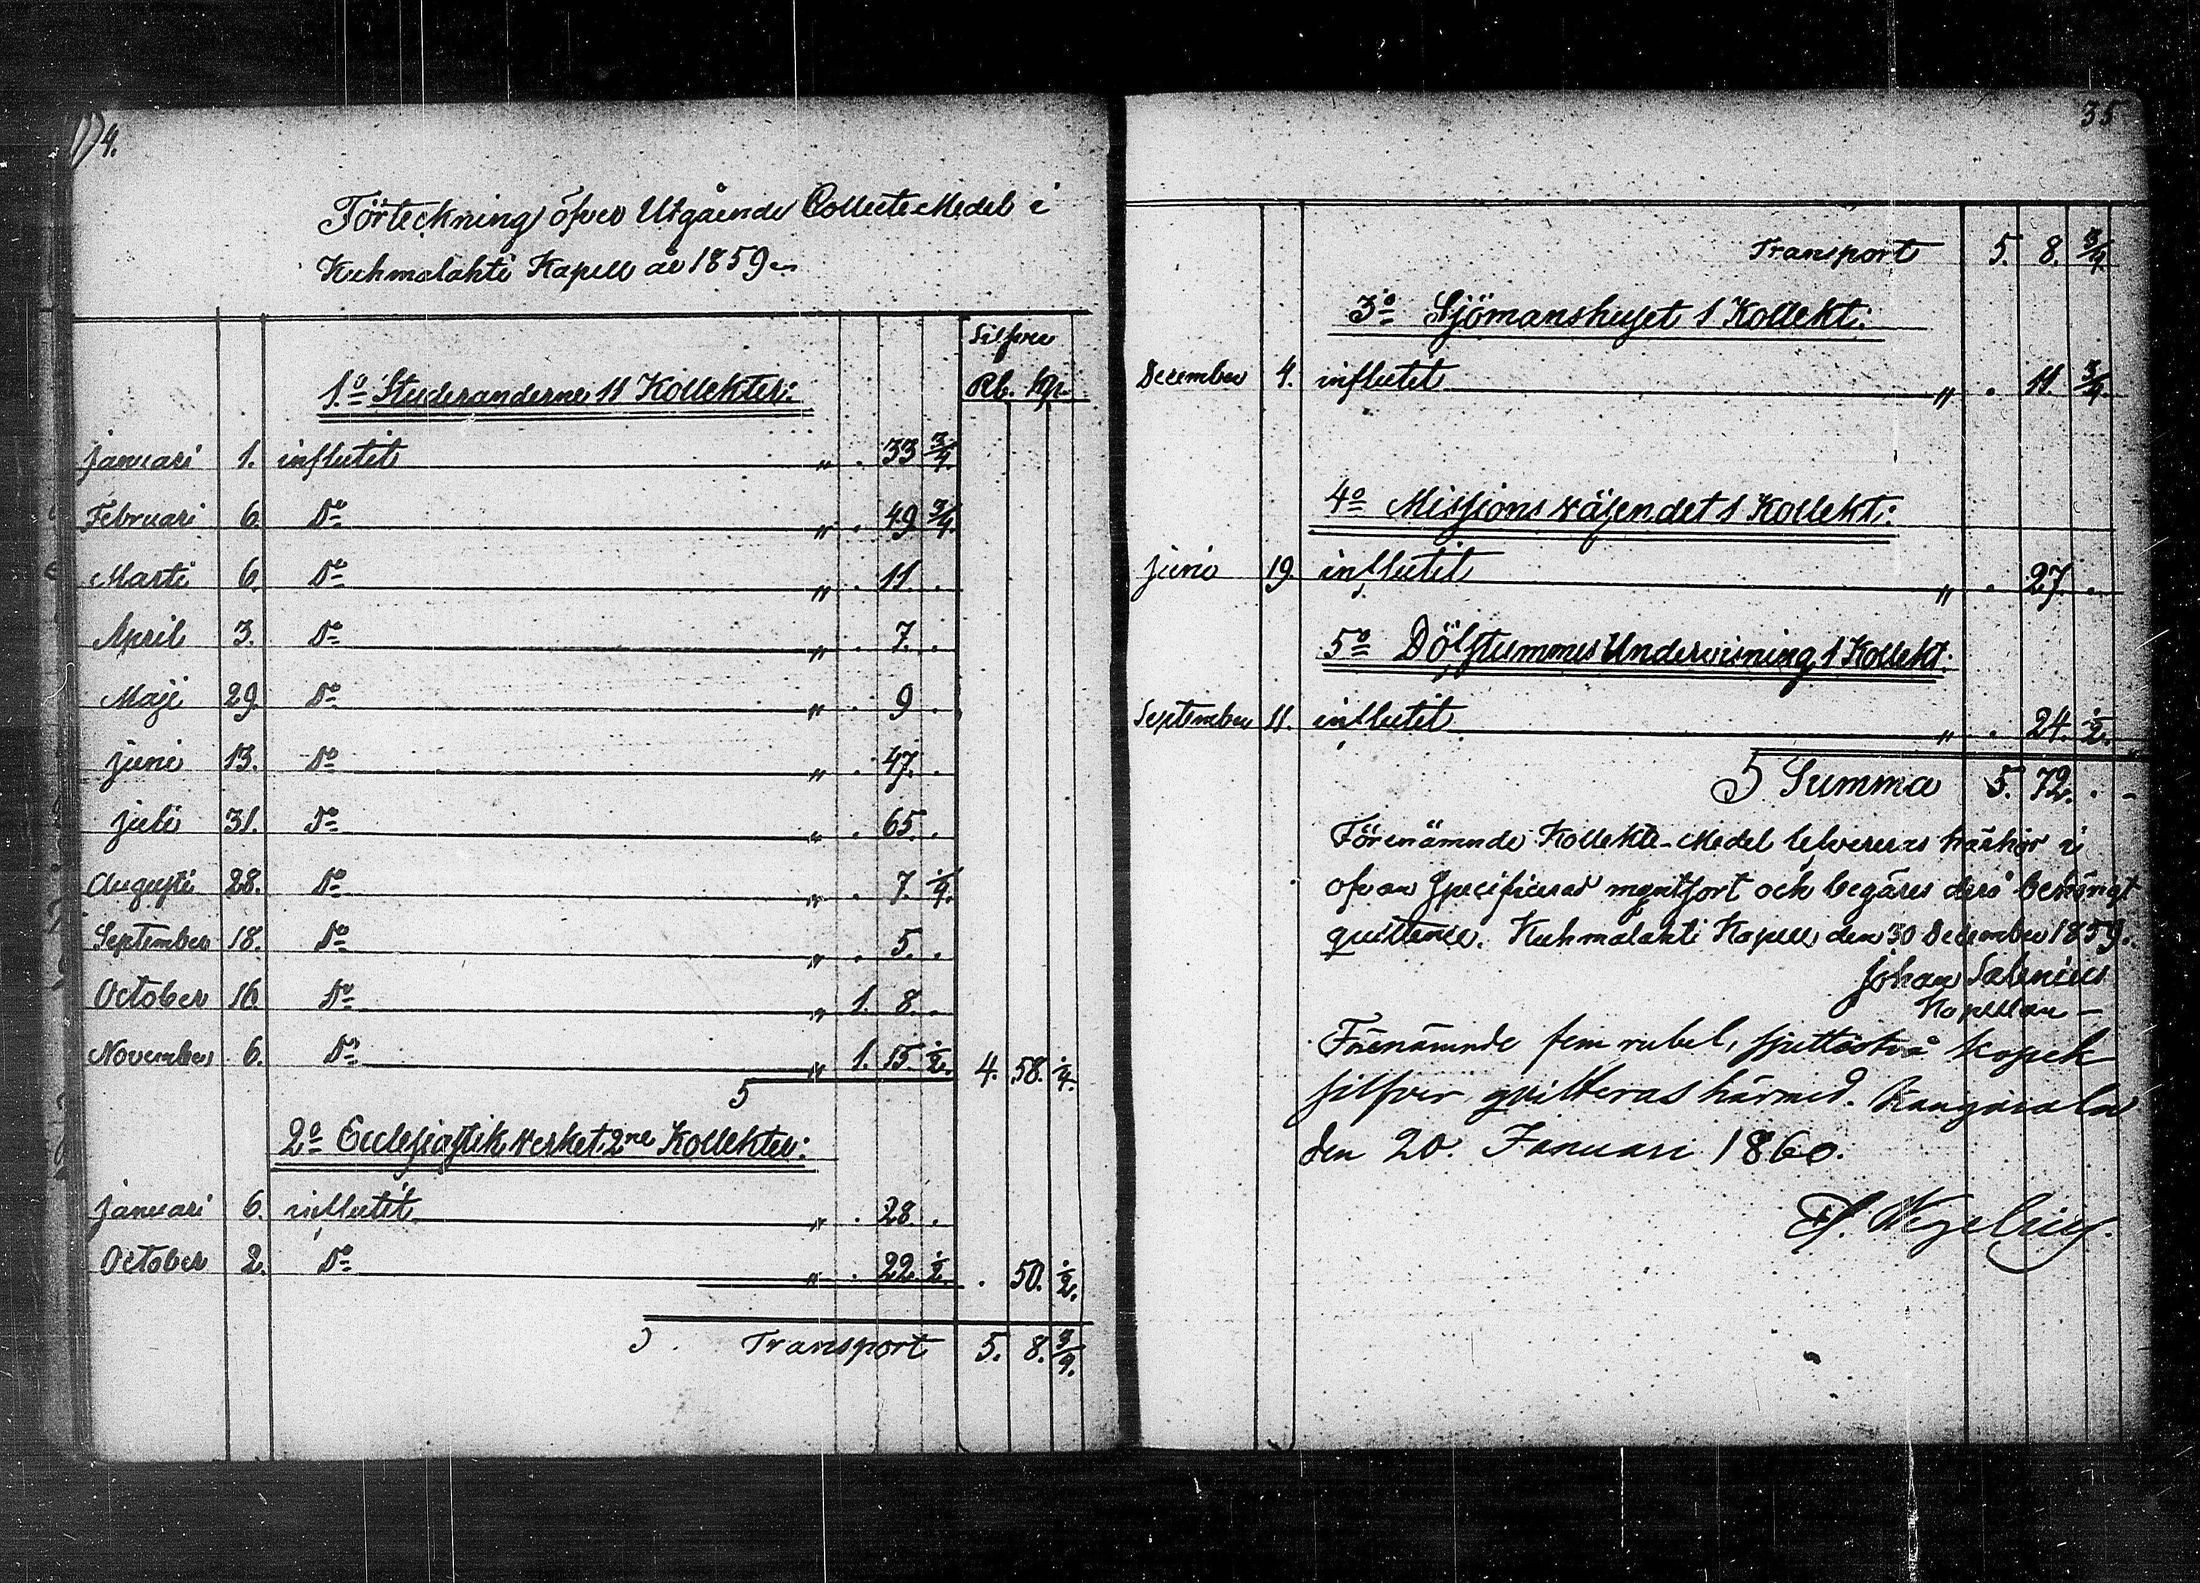 4.
Förteckning öfver Utgående Collecte Medel i
Kuhmalahti Kapell år 1859
Silfver
1:o Studeranderne 11 Kollekter: Rb. Kp.
Januari 1. influtit " . 33 3/4.
Februari 6. Do " . 49 3/4.
Marti 6. Do " . 11. .
April 3. Do " . 7. .
Maji 29. Do " . 9 .
Juni 13. Do " . 47. .
Juli 31. Do " . 65. .
Augusti 28. Do " . 7. 1/4.
September 18. Do " . 5. .
October 16. Do " 1. 8. .
November 6. Do " 1. 15. 1/2. 4. 58. 1/4.
2:o Ecclesiastik verket 2ne Kollekter:
Januari 6. influtit " . 28. .
October 2. Do " . 22. 1/2. . 50. 1/2.
Transport 5. 8. 3/4.
35
Transport 5. 8. 3/4.
3:o Sjömanshuset 1 Kollekt:
December 4. influtit " . 11. 3/4.
4:o Missions väsendet 1 Kollekt:
Juni 19. influtit " . 27. .
5:o Döfstummes Undervisning 1 Kollekt.
September 11. influtit " . 24. 1/2.
Summa 5. 72. . -
Förenämnde Kollekte-Medel lefvereras härhos i
ofvan specificerad myntsort och begäres derå benängt
quittence. Kuhmalahti Kapell den 30 December 1859.
Johan Salenius
Kapellan
Förenämnde fem rubel, sjuttiotvå kopek
silfver qvitteras härmed. Kangasala
den 20. Januari 1860.